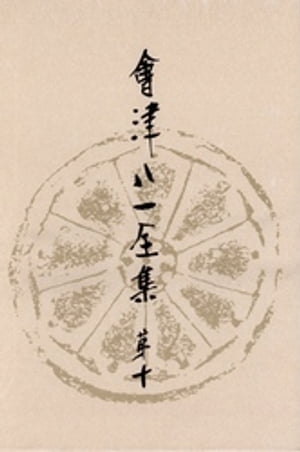 會津八一全集 第十